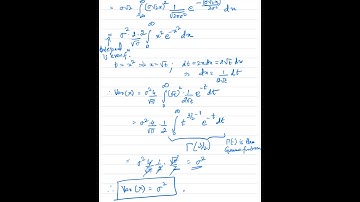 = σ√2 ∫ (σ√2x)² 1/√(2πσ²) e^(-(σ√2x)²/2σ²) dx
= σ² 2·2/√π ∫₀^∞ x² e^(-x²) dx
Integrand is even fn.
t = x² ⇒ x = √t ; dt = 2x dx = 2√t dx
⇒ dx = 1/(2√t) dt
∴ Var(X) = σ² 4/√π ∫₀^∞ (√t)² 1/(2√t) e^(-t) dt
= σ² 4/√π 1/2 ∫₀^∞ t^(3/2-1) e^(-t) dt
Γ(3/2) Γ(·) is the Gamma function
= σ² 4/√π · 1/2 · √π/2 = σ²
∴ Var(X) = σ² .